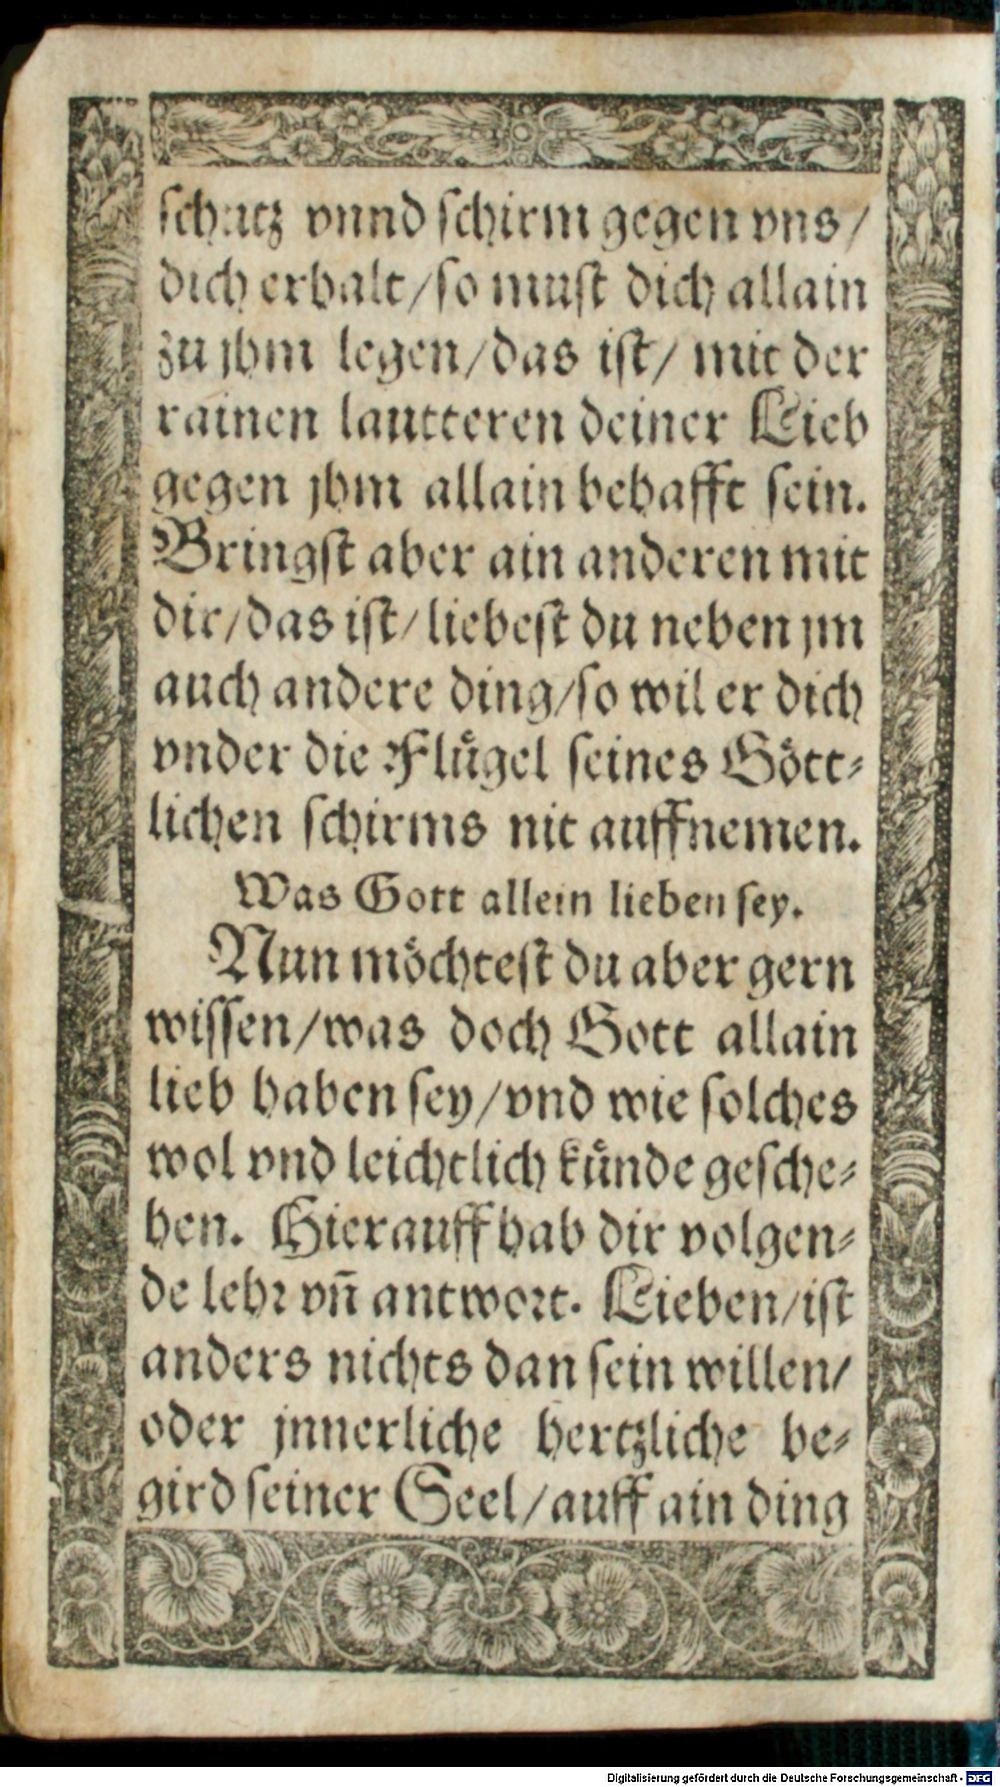 schutz vnnd schirm gegen vns/
dich erhalt/so must dich allain
zu jhm legen/das ist/ mit der
rainen lautteren deiner Lieb
gegen jhm allain behafft sein.
Bringst aber ain anderen mit
dir/das ist/liebest du neben jm
auch andere ding/so wil er dich
vnder die Flügel seines Gött-
lichen schirms nit auffnemen.
Was Gott allein lieben sey.
Nun möchtest du aber gern
wissen/was doch Gott allain
lieb haben sey/vnd wie solches
wol vnd leichtlich künde gesche-
hen. Hierauff hab dir volgen-
de lehr vn̄ antwort. Lieben/ist
anders nichts dan sein willen/
oder jnnerliche hertzliche be-
gird seiner Seel/auff ain ding
Digitalisierung gefördert durch die Deutsche Forschungsgemeinschaft - DFG